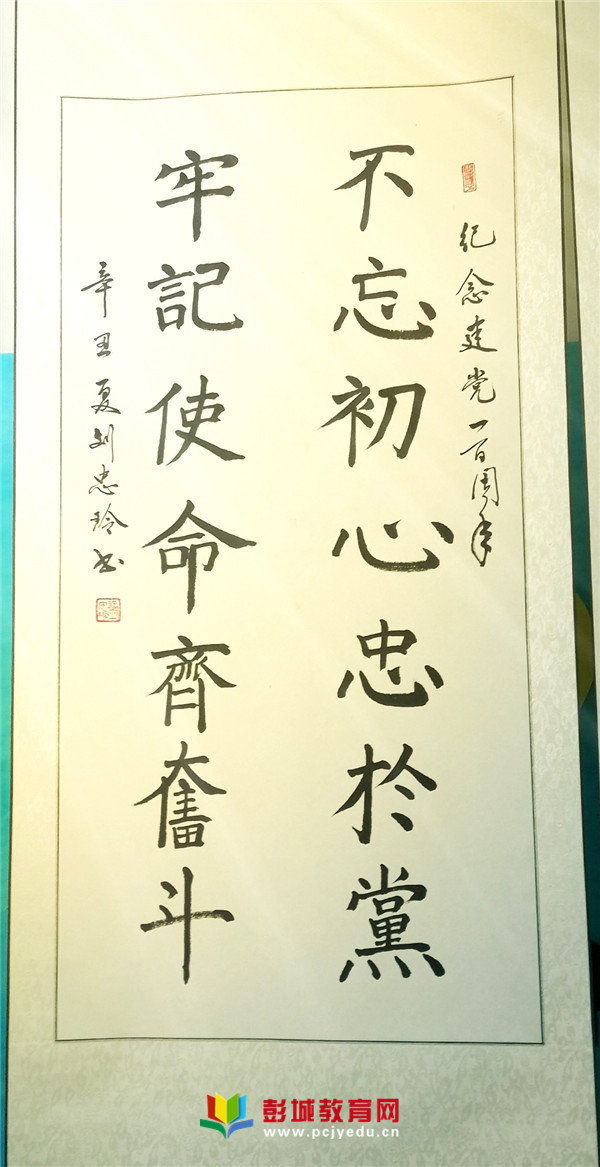 纪念建党一百周年
不忘初心忠於黨
牢記使命齊奮斗
辛丑夏刘忠玲书
彭城教育网
www.pcjyedu.cn